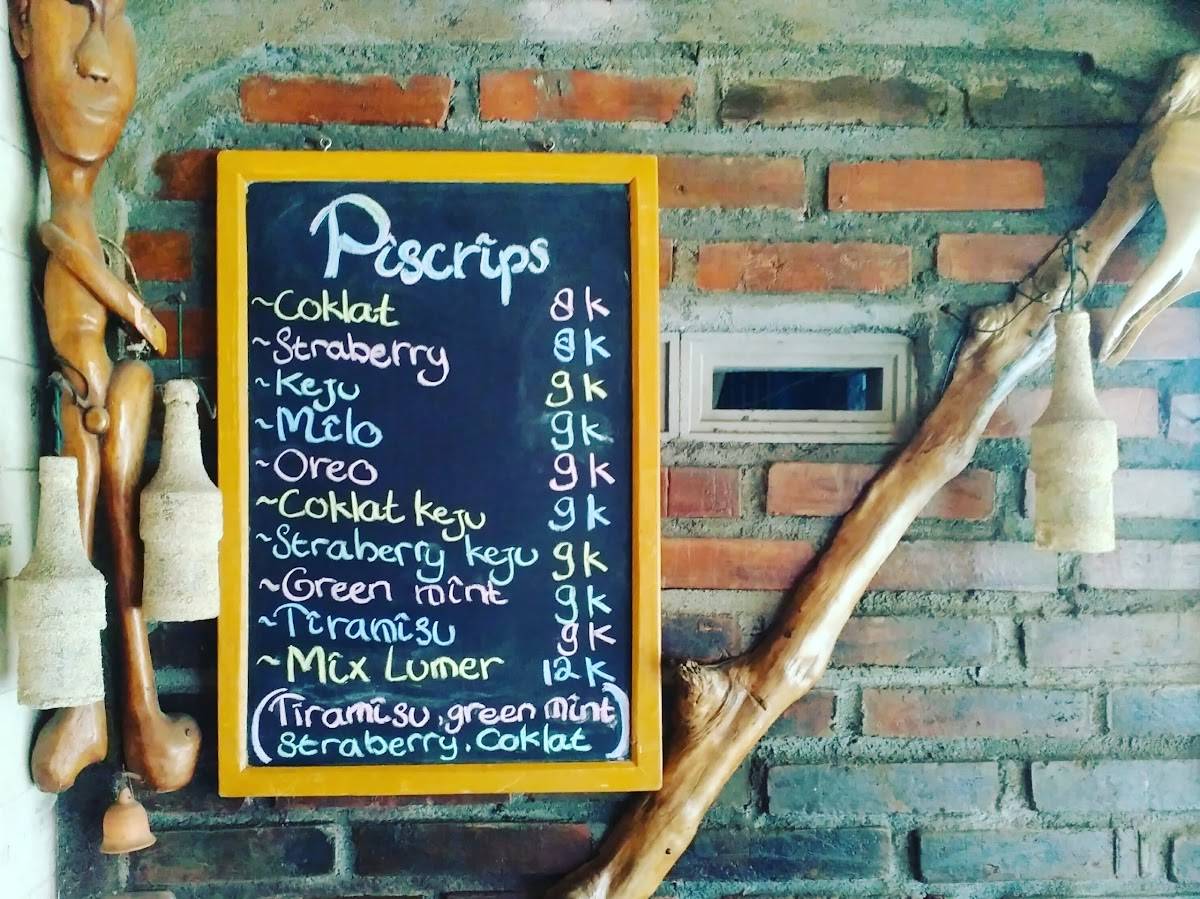 Piscrips
~Coklat 8k
~Straberry 8k
~Keju 9k
~Milo 9k
~Oreo 9k
~Coklat keju 9k
~Straberry keju 9k
~Green mint 9k
~Tiramisu 9k
~Mix Lumer 12k
(Tiramisu, green mint
straberry, Coklat)